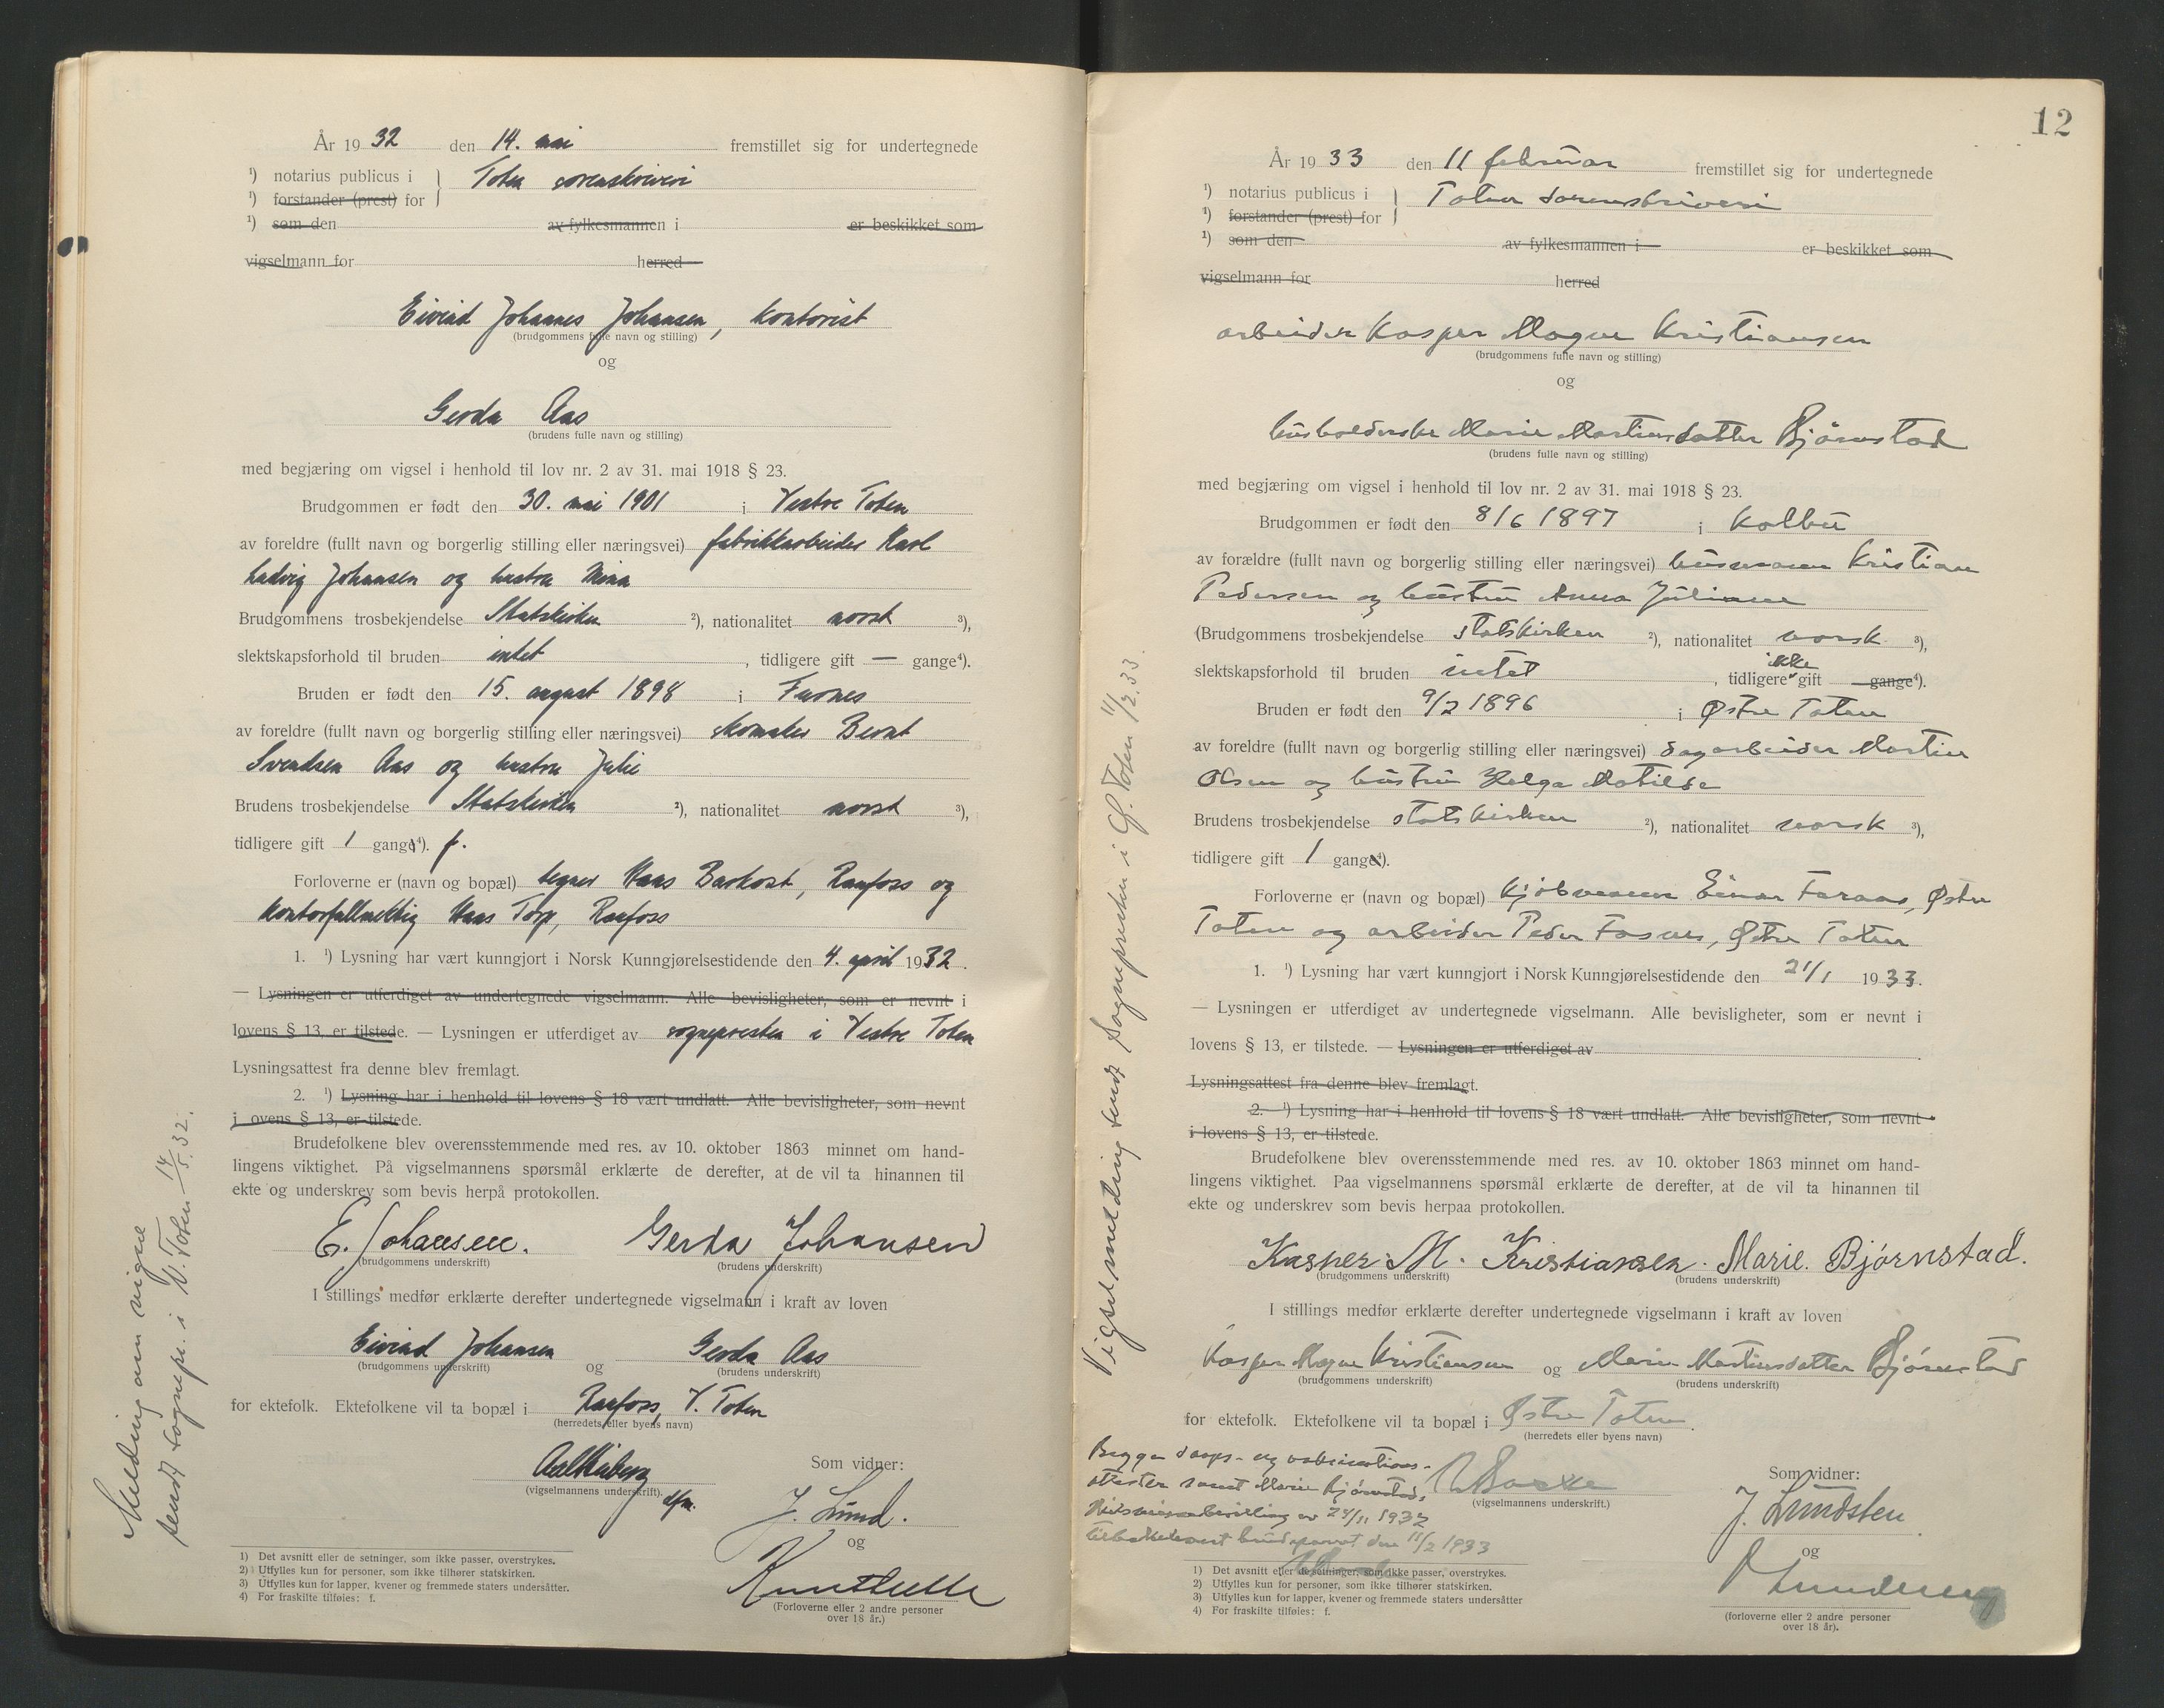 År 1932 den 14. mai fremstillet sig for undertegnede
¹) notarius publicus i } Toten sorenskriveri
¹) forstander (prest) for
¹) som den av fylkesmannen i er beskikket som
vigselmann for herred
Eivind Johannes Johansen, kontorist
(brudgommens fulle navn og stilling)
og
Gerda Aas
(brudens fulle navn og stilling)
med begjæring om vigsel i henhold til lov nr. 2 av 31. mai 1918 § 23.
Brudgommen er født den 30. mai 1901 i Vestre Toten
av foreldre (fullt navn og borgerlig stilling eller næringsvei) fabrikkarbeider Karl
Ludvig Johansen og hustru Mina
Brudgommens trosbekjendelse Statskirken ²), nationalitet norsk ³),
slektskapsforhold til bruden intet , tidligere gift — gange⁴).
Bruden er født den 15. august 1898 i Furnes
av foreldre (fullt navn og borgerlig stilling eller næringsvei) skomaker Bernt
Svendsen Aas og hustru Julie
Brudens trosbekjendelse Statskirken ²), nationalitet norsk ³),
tidligere gift 1 gang⁴). f.
Forloverne er (navn og bopæl) tegner Hans Barkost, Raufoss og
kontorfullmektig Hans Torp, Raufoss
1. ¹) Lysning har vært kunngjort i Norsk Kunngjørelsestidende den 4. april 1932.
— Lysningen er utferdiget av undertegnede vigselmann. Alle bevisligheter, som er nevnt i
lovens § 13, er tilstede. — Lysningen er utferdiget av sognepresten i Vestre Toten
Lysningsattest fra denne blev fremlagt.
2. ¹) Lysning har i henhold til lovens § 18 vært undlatt. Alle bevisligheter, som nevnt
i ovens § 13, er tilstede.
Brudefolkene blev overensstemmende med res. av 10. oktober 1863 minnet om hand-
lingens viktighet. På vigselmannens spørsmål erklærte de derefter, at de vil ta hinannen til
ekte og underskrev som bevis herpå protokollen.
E. Johansen. Gerda Johansen
(brudgommens underskrift) (brudens underskrift)
I stillings medfør erklærte derefter undertegnede vigselmann i kraft av loven
Eivind Johansen og Gerda Aas
(brudgommens underskrift) (brudens underskrift)
for ektefolk. Ektefolkene vil ta bopæl i Raufoss, V. Toten
(herredets eller byens navn)
(vigselmannens underskrift). dfm.
Som vidner:
J. Lund.
og
(Forloverne eller 2 andre personer
over 18 år.)
Melding om vigsel
sendt sognepr. i V. Toten 14/5. 32.
1) Det avsnitt eller de setninger, som ikke passer, overstrykes.
2) Utfylles kun for personer, som ikke tilhører statskirken.
3) Utfylles kun for lapper, kvener og fremmede staters undersåtter.
4) For fraskilte tilføies: f.
12
År 1933 den 11 februar fremstillet sig for undertegnede
¹) notarius publicus i } Toten sorenskriveri
¹) forstander (prest) for
¹) som den av fylkesmannen i er beskikket som
vigselmann for herred
arbeider Kasper Magne Kristiansen
(brudgommens fulle navn og stilling)
og
husholderske Marie Martinsdatter Bjørnstad
(brudens fulle navn og stilling)
med begjæring om vigsel i henhold til lov nr. 2 av 31. mai 1918 § 23.
Brudgommen er født den 8/6 1897 i Kolbu
av forældre (fullt navn og borgerlig stilling eller næringsvei) husmann Kristian
Pedersen og hustru Anna Juliane
(Brudgommens trosbekjendelse statskirken ²), nationalitet norsk ³),
slektskapsforhold til bruden intet , tidligere ikke gift gange⁴).
Bruden er født den 9/2 1896 i Østre Toten
av foreldre (fullt navn og borgerlig stilling eller næringsvei) dagarbeider Martin
Olsen og hustru Helga Matilde
Brudens trosbekjendelse statskirken ²), nationalitet norsk ³),
tidligere gift 1 gange⁴).
Forloverne er (navn og bopæl) kjøbmann Einar Faraas, Østre
Toten og arbeider Peder Fosnes, Østre Toten
1. ¹) Lysning har vært kunngjort i Norsk Kunngjørelsestidende den 21/1 1933.
— Lysningen er utferdiget av undertegnede vigselmann. Alle bevisligheter, som er nevnt i
lovens § 13, er tilstede. — Lysningen er utferdiget av
Lysningsattest fra denne blev fremlagt.
2. ¹) Lysning har i henhold til lovens § 18 vært undlatt. Alle bevisligheter, som nevnt
i lovens § 13, er tilstede.
Brudefolkene blev overensstemmende med res. av 10. oktober 1863 minnet om hand-
lingens viktighet. Paa vigselmannens spørsmål erklærte de derefter, at de vil ta hinannen til
ekte og underskrev som bevis herpaa protokollen.
Kasper. M. Kristiansen. Marie. Bjørnstad.
(brudgommens underskrift) (brudens underskrift)
I stillings medfør erklærte derefter undertegnede vigselmann i kraft av loven
Kasper Magne Kristiansen og Marie Martinsdatter Bjørnstad
(brudgommens underskrift) (brudens underskrift)
for ektefolk. Ektefolkene vil ta bopæl i Østre Toten.
(herredets eller byens navn)
Begges daaps- og vaksinations-
attester samt Marie Bjørnstads
skilsmissebevilling av 24/11 1932
tilbakelevert brudeparet den 11/2 1933
(vigselmannens underskrift.)
Som vidner:
J. Lundsten
og
(forloverne eller 2 andre personer
over 18 år).
Vigselmelding sendt sognepresten i Ø. Toten 11/2. 33.
1) Det avsnitt eller de setninger, som ikke passer, overstrykes.
2) Utfylles kun for personer, som ikke tilhører statskirken.
3) Utfylles kun for lapper, kvener og fremmede staters undersåtter
4) For fraskilte tilføies: f.